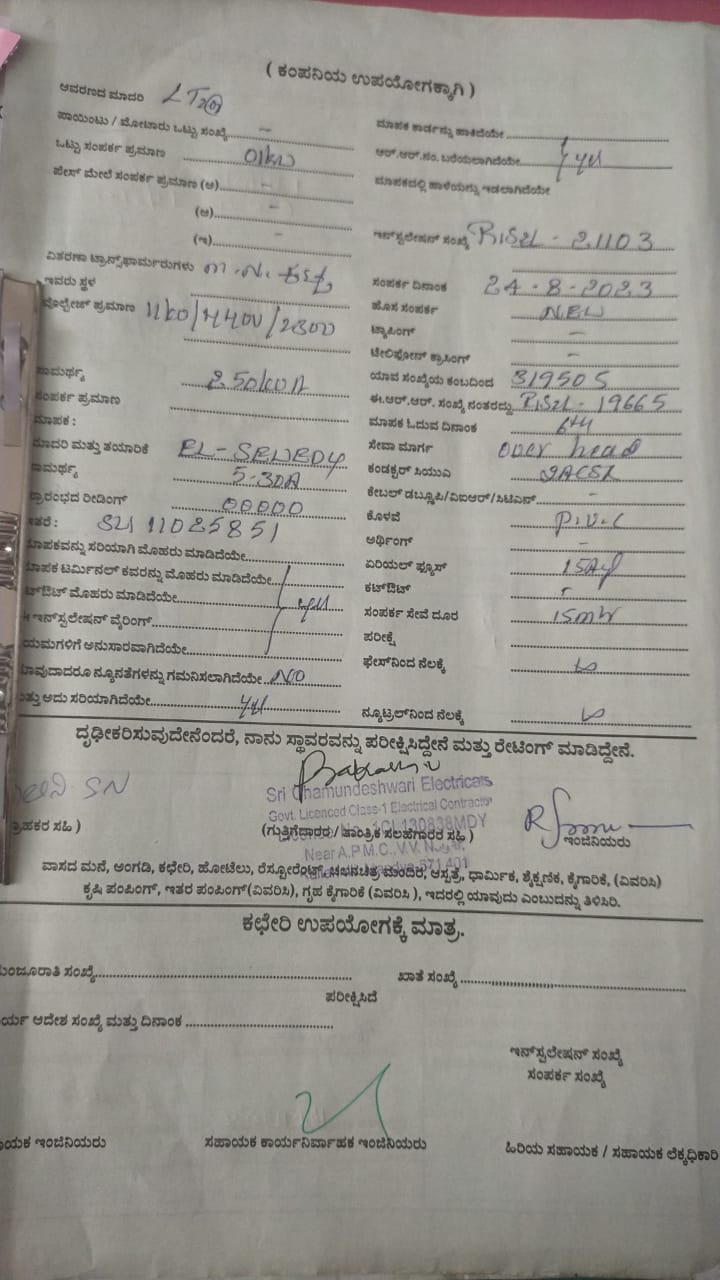 ( ಕಂಪನಿಯ ಉಪಯೋಗಕ್ಕಾಗಿ )
ಆವರಣದ ಮಾದರಿ LT2(a)
ಪಾಯಿಂಟು / ಮೋಟಾರು ಒಟ್ಟು ಸಂಖ್ಯೆ –
ಒಟ್ಟು ಸಂಪರ್ಕ ಪ್ರಮಾಣ 01kw
ಫೇಸ್ ಮೇಲೆ ಸಂಪರ್ಕ ಪ್ರಮಾಣ (ಅ) –
(ಆ) –
(ಇ) –
ವಿತರಣಾ ಟ್ರಾನ್ಸ್‌ಫಾರ್ಮರುಗಳು
ಇವರು ಸ್ಥಳ
ವೋಲ್ಟೇಜ್ ಪ್ರಮಾಣ
ಸಾಮರ್ಥ್ಯ 250kVA
ಸಂಪರ್ಕ ಪ್ರಮಾಣ
ಮಾಪಕ :
ಮಾದರಿ ಮತ್ತು ತಯಾರಿಕೆ
ಸಾಮರ್ಥ್ಯ 5-30A
ಪ್ರಾರಂಭದ ರೀಡಿಂಗ್ 00000
ಇತರೆ : 11085851
ಮಾಪಕವನ್ನು ಸರಿಯಾಗಿ ಮೊಹರು ಮಾಡಿದೆಯೇ
ಮಾಪಕ ಟರ್ಮಿನಲ್ ಕವರನ್ನು ಮೊಹರು ಮಾಡಿದೆಯೇ
ಕಟ್‌ಔಟ್ ಮೊಹರು ಮಾಡಿದೆಯೇ yes
ಇನ್‌ಸ್ಟಲೇಷನ್ ವೈರಿಂಗ್
ಯಮಗಳಿಗೆ ಅನುಸಾರವಾಗಿದೆಯೇ
ಯಾವುದಾದರೂ ನ್ಯೂನತೆಗಳನ್ನು ಗಮನಿಸಲಾಗಿದೆಯೇ NO
ಮತ್ತು ಅದು ಸರಿಯಾಗಿದೆಯೇ yes
ಮಾಪಕ ಕಾರ್ಡನ್ನು ಹಾಕಿದೆಯೇ
ಆರ್.ಆರ್.ನಂ. ಬರೆಯಲಾಗಿದೆಯೇ yes
ಮಾಪಕದಲ್ಲಿ ಹಾಳೆಯನ್ನು ಇಡಲಾಗಿದೆಯೇ
ಇನ್‌ಸ್ಟಲೇಷನ್ ಸಂಖ್ಯೆ 21103
ಸಂಪರ್ಕ ದಿನಾಂಕ 24-8-2023
ಹೊಸ ಸಂಪರ್ಕ NEW
ಟ್ಯಾಪಿಂಗ್ –
ಟೇಲಿಫೋನ್ ಕ್ರಾಸಿಂಗ್ –
ಯಾವ ಸಂಖ್ಯೆಯ ಕಂಬದಿಂದ 319505
ಈ.ಆರ್.ಆರ್. ಸಂಖ್ಯೆ ನಂತರದ್ದು 19665
ಮಾಪಕ ಓದುವ ದಿನಾಂಕ 6th
ಸೇವಾ ಮಾರ್ಗ over head
ಕಂಡಕ್ಟರ್ ಸಿಯುಎ
ಕೇಬಲ್ ಡಬ್ಲ್ಯೂಪಿ/ವಿಐಆರ್/ಸಿಟಿಎಸ್ –
ಕೊಳವೆ P.V.C
ಅರ್ಥಿಂಗ್ –
ಏರಿಯಲ್ ಫ್ಯೂಸ್
ಕಟ್‌ಔಟ್
ಸಂಪರ್ಕ ಸೇವೆ ದೂರ
ಪರೀಕ್ಷೆ
ಫೇಸ್‌ನಿಂದ ನೆಲಕ್ಕೆ
ನ್ಯೂಟ್ರಲ್‌ನಿಂದ ನೆಲಕ್ಕೆ
ದೃಢೀಕರಿಸುವುದೇನೆಂದರೆ, ನಾನು ಸ್ಥಾವರವನ್ನು ಪರೀಕ್ಷಿಸಿದ್ದೇನೆ ಮತ್ತು ರೇಟಿಂಗ್ ಮಾಡಿದ್ದೇನೆ.
Sri Chamundeshwari Electricals
Govt. Licenced Class-1 Electrical Contractor
130838MDY
Near A.P.M.C., V.V. Nagar,
571401
ಗ್ರಾಹಕರ ಸಹಿ )
(ಗುತ್ತಿಗೆದಾರರ / ತಾಂತ್ರಿಕ ಸಲಹೆಗಾರರ ಸಹಿ )
ಇಂಜಿನಿಯರು
ವಾಸದ ಮನೆ, ಅಂಗಡಿ, ಕಛೇರಿ, ಹೋಟೆಲು, ರೆಸ್ಟೋರೆಂಟ್, ಚಲನಚಿತ್ರ ಮಂದಿರ, ಆಸ್ಪತ್ರೆ, ಧಾರ್ಮಿಕ, ಶೈಕ್ಷಣಿಕ, ಕೈಗಾರಿಕೆ, (ವಿವರಿಸಿ)
ಕೃಷಿ ಪಂಪಿಂಗ್, ಇತರ ಪಂಪಿಂಗ್(ವಿವರಿಸಿ), ಗೃಹ ಕೈಗಾರಿಕೆ (ವಿವರಿಸಿ ), ಇದರಲ್ಲಿ ಯಾವುದು ಎಂಬುದನ್ನು ತಿಳಿಸಿರಿ.
ಕಛೇರಿ ಉಪಯೋಗಕ್ಕೆ ಮಾತ್ರ.
ಮಂಜೂರಾತಿ ಸಂಖ್ಯೆ
ಖಾತೆ ಸಂಖ್ಯೆ
ಪರೀಕ್ಷಿಸಿದೆ
ಕಾರ್ಯ ಆದೇಶ ಸಂಖ್ಯೆ ಮತ್ತು ದಿನಾಂಕ
ಇನ್‌ಸ್ಟಲೇಷನ್ ಸಂಖ್ಯೆ
ಸಂಪರ್ಕ ಸಂಖ್ಯೆ
ಸಹಾಯಕ ಇಂಜಿನಿಯರು
ಸಹಾಯಕ ಕಾರ್ಯನಿರ್ವಾಹಕ ಇಂಜಿನಿಯರು
ಹಿರಿಯ ಸಹಾಯಕ / ಸಹಾಯಕ ಲೆಕ್ಕಧಿಕಾರಿ